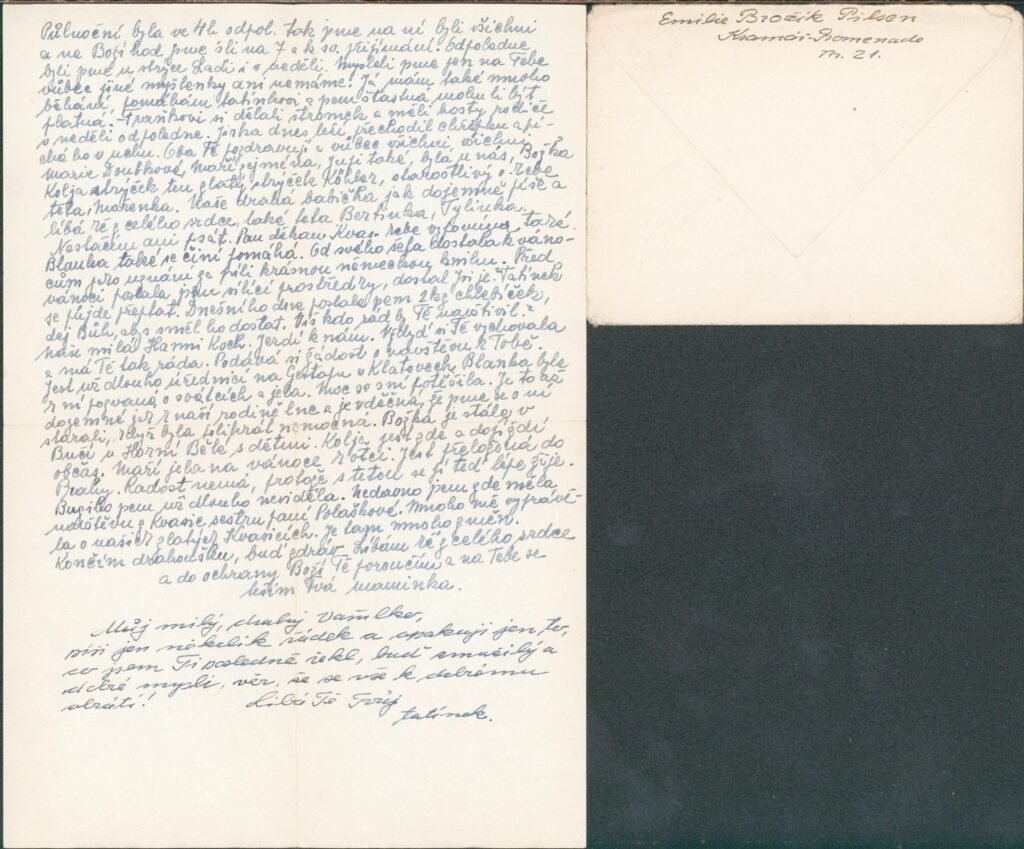 Půlnoční byla ve 4h odpol. tak jsme na ní byli všichni
a na Boží hod jsme šli na 7 a k sv. přijímání. Odpoledne
byli jsme u strýce Ladi i v neděli. Mysleli jsme jen na Tebe
vůbec jiné myšlenky ani nemáme! Já mám také mnoho
běhání, pomáhám tatínkovi a jsem šťastná mohu-li být
platná! Fraňkovi si dělali stromek a měli hosty rodiče
v neděli odpoledne. Jirka dnes leží, přechodil chřipku a pí-
chá ho v uchu. Oba Tě pozdravují a vůbec všichni, všichni
Marie Doubkové, Maří zejména, Juji také, byla u nás, Božka
Kolja strýček ten zlatý strýček Köhler, starostlivý o Tebe
teta, Mařenka. Naše drahá babička jak dojemně píše a
líbá Tě z celého srdce, také teta Bertinka, Tylinka.
Nestačím ani psát. Pan děkan Kvas. Tebe vzpomíná, také.
Blanka také se činí pomáhá. Od svého šéfa dostala k váno-
cům pro uznání za píli krásnou německou knihu. Před
vánoci poslala jsem sílící prostředky, dostal Jsi je? Tatínek
se půjde přeptat. Dnešního dne poslala jsem 2kg chlebíček,
dej Bůh, abys směl ho dostat. Víš kdo rád by Tě navštívil?
naše milá Hanni Koch. Jezdí k nám. Vždyť si Tě vychovala
a má Tě tak ráda. Podává si žádost o návštěvu k Tobě.
Jest už dlouho úřednicí na Gestapu v Klatovech Blanka byla
k ní pozvaná o svátcích a jela. Moc se s ní potěšila. Je to až
dojemné jak k naší rodině lne a je vděčna, že jsme se o ni
starali, když byla tolikrát nemocna. Božka je stále v
Bučí u Horní Bělé s dětmi. Kolja jest zde a dojíždí
občas. Maří jela na vánoce k otci. Jest přeložená do
Prahy. Radost nemá, protože s tetou se jí teď lépe žije.
jsem už dlouho neviděla. Nedávno jsem zde měla
návštěvu z Kvasic sestru paní Polaškové. Mnoho mě vypravě-
la o našich zlatých Kvasicích. Je tam mnoho změn.
Končím drahoušku, buď zdráv. Líbám Tě z celého srdce
a do ochrany Boží Tě poroučím a na Tebe se
těším Tvá maminka.
Můj milý, drahý Vašilko,
píši jen několik řádek a opakuji jen to,
co jsem Ti posledně řekl, buď smužilý a
dobré mysli, věř, že se vše k dobrému
obrátí! Líbá Tě Tvůj
tatínek.
Emilie Brožik Pilsen
Kramář-Promenade
Nr. 21.